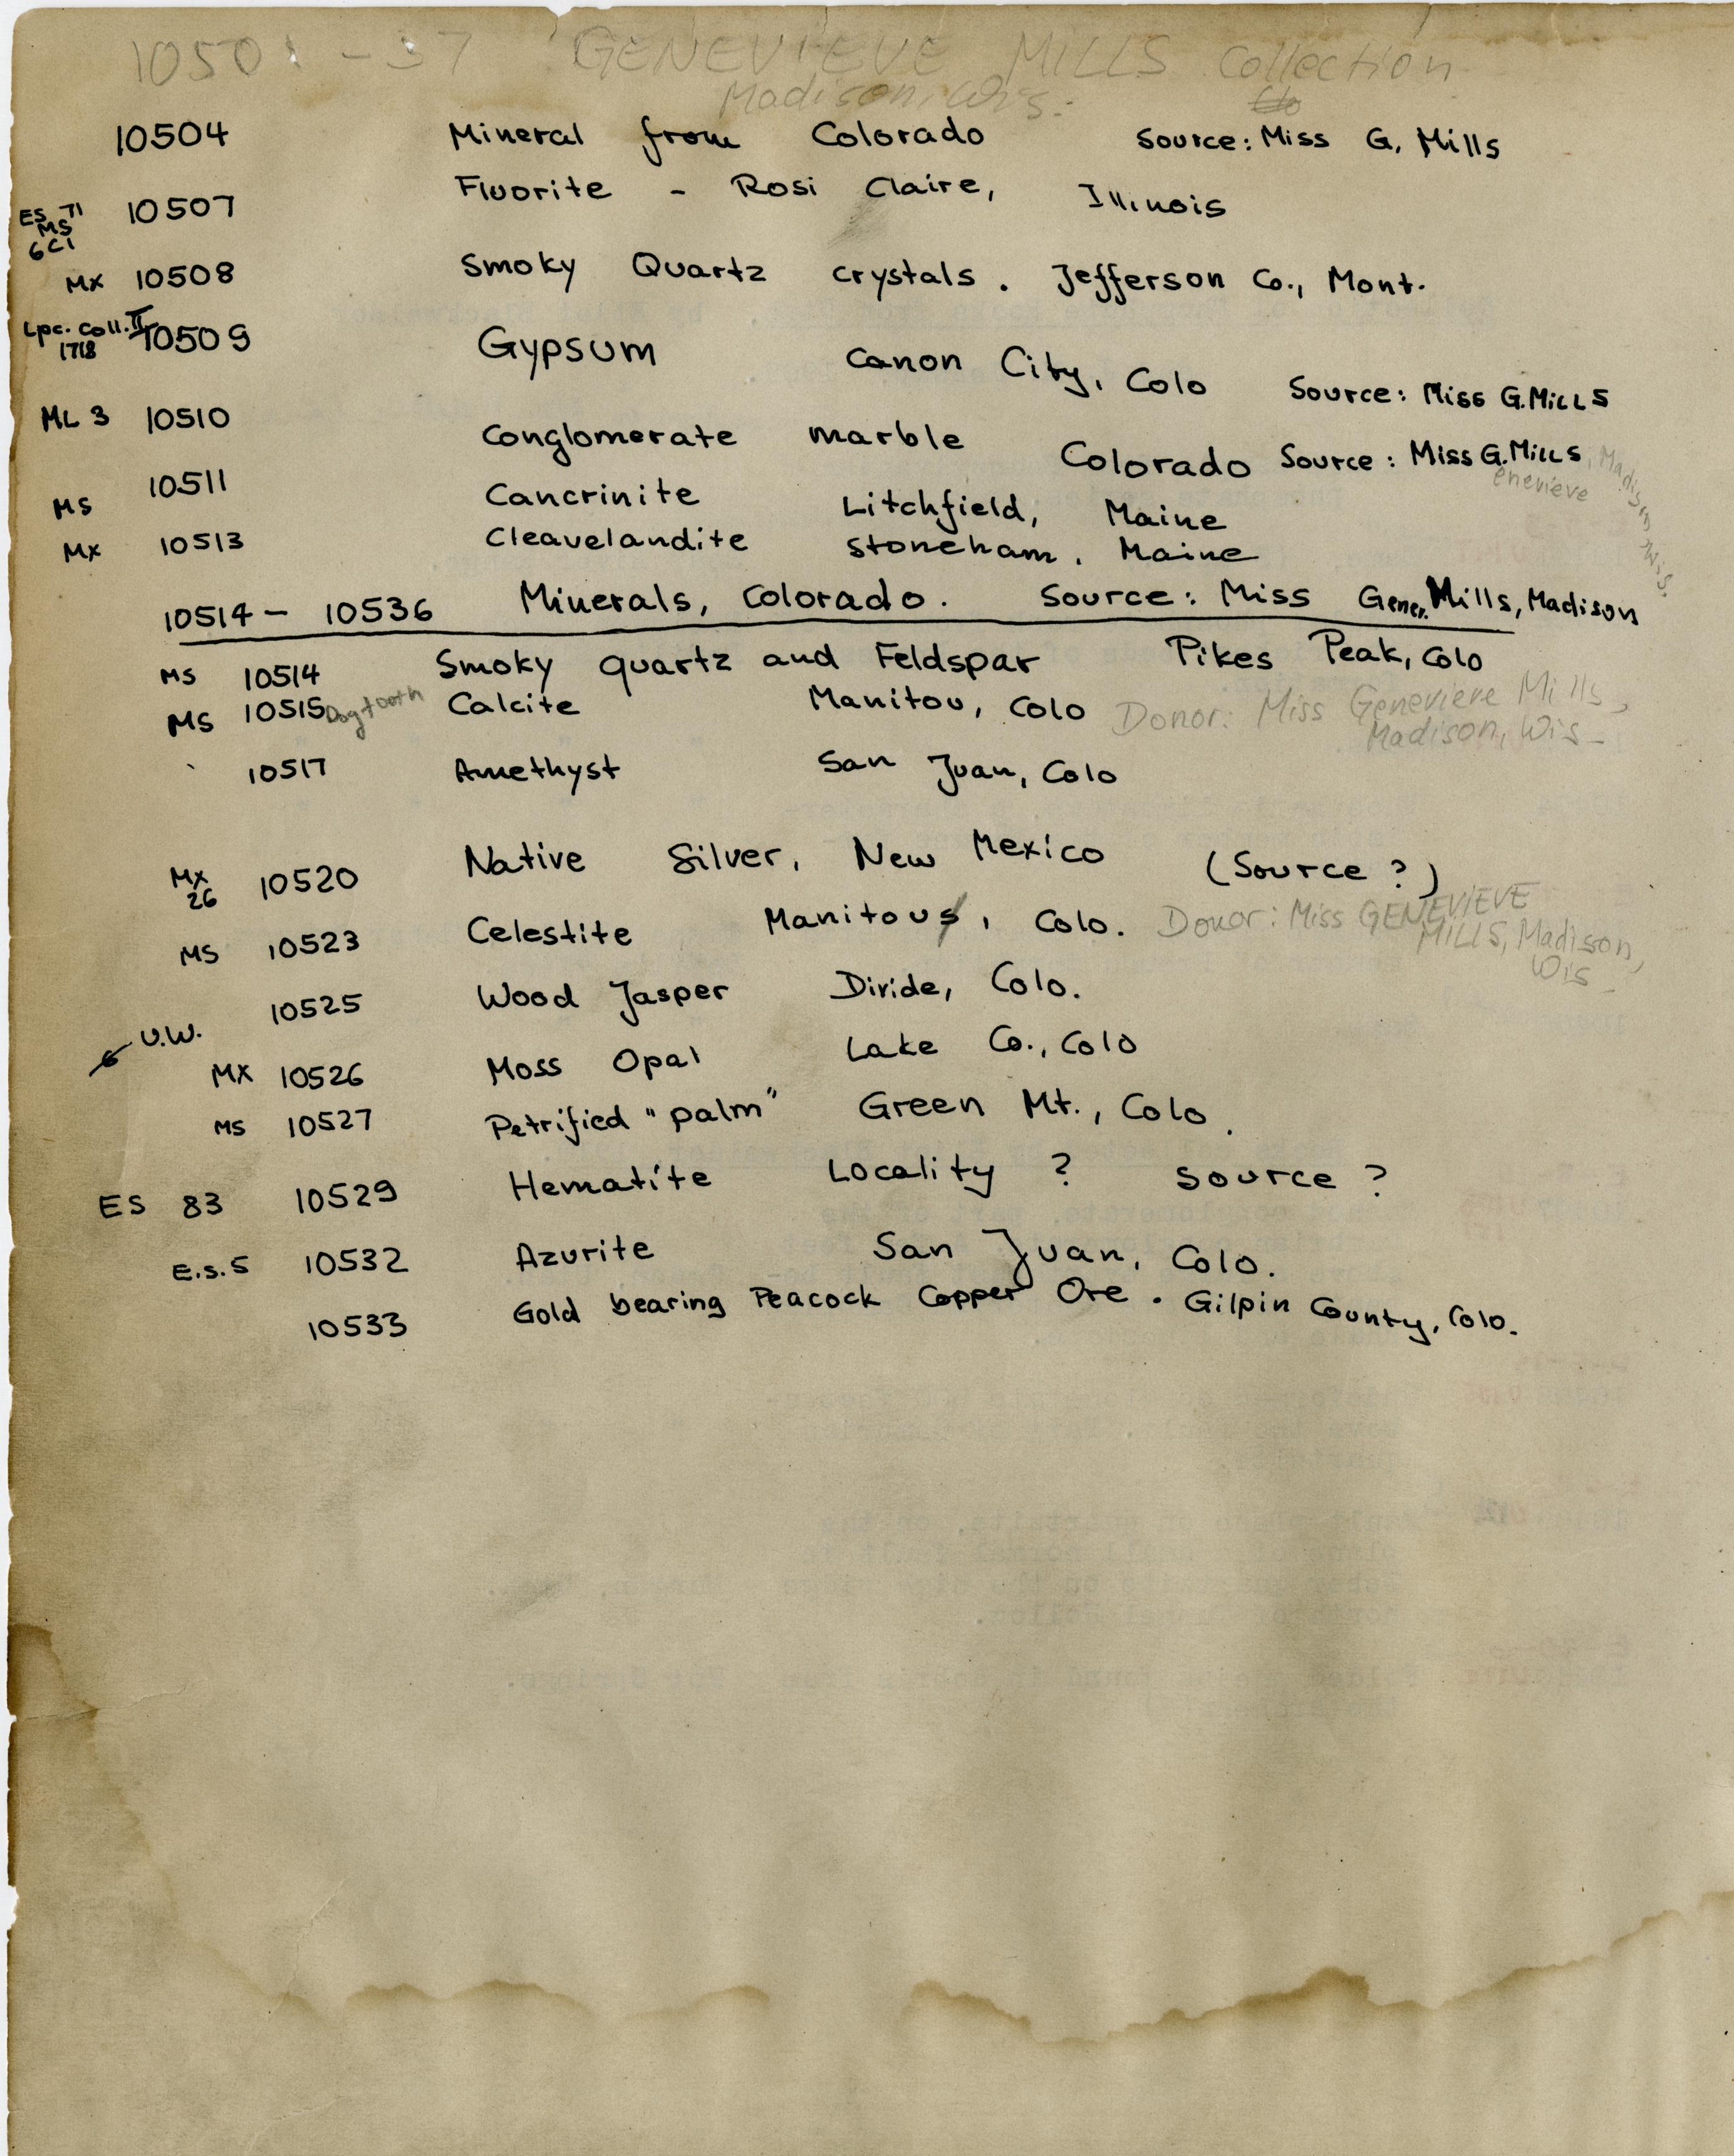 1050 - 37 GENEVIEVE MILLS Collection
Madison, Wis.
10504 Mineral from Colorado Source: Miss G. Mills
ES 71 MS 6C1 10507 Fluorite - Rosi Claire, Illinois
MX 10508 Smoky Quartz crystals. Jefferson Co., Mont.
Lpc. Coll. II 1718 10509 Gypsum Canon City, Colo Source: Miss G. Mills
ML 3 10510 Conglomerate marble Colorado Source: Miss G. Mills, Madison Wis.
enevieve
MS 10511 Cancrinite Litchfield, Maine
MX 10513 Cleavelandite Stoneham, Maine
10514 - 10536 Minerals, Colorado. Source: Miss Genev. Mills, Madison
MS 10514 Smoky quartz and Feldspar Pikes Peak, Colo
MS 10515 Dogtooth Calcite Manitou, Colo Donor: Miss Genevieve Mills,
Madison, Wis-
10517 Amethyst San Juan, Colo
MX 26 10520 Native Silver, New Mexico (Source ?)
MS 10523 Celestite Manitous, Colo. Donor: Miss GENEVIEVE
MILLS, Madison,
Wis
10525 Wood Jasper Divide, Colo.
U.W.
MX 10526 Moss Opal Lake Co., Colo
MS 10527 Petrified "palm" Green Mt., Colo.
ES 83 10529 Hematite Locality ? Source ?
E.S. 5 10532 Azurite San Juan, Colo.
10533 Gold bearing Peacock Copper Ore. Gilpin County, Colo.